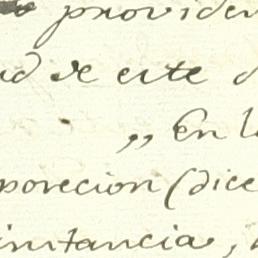 providen
ud de este d
„ En l
porecion (dice
instancia,